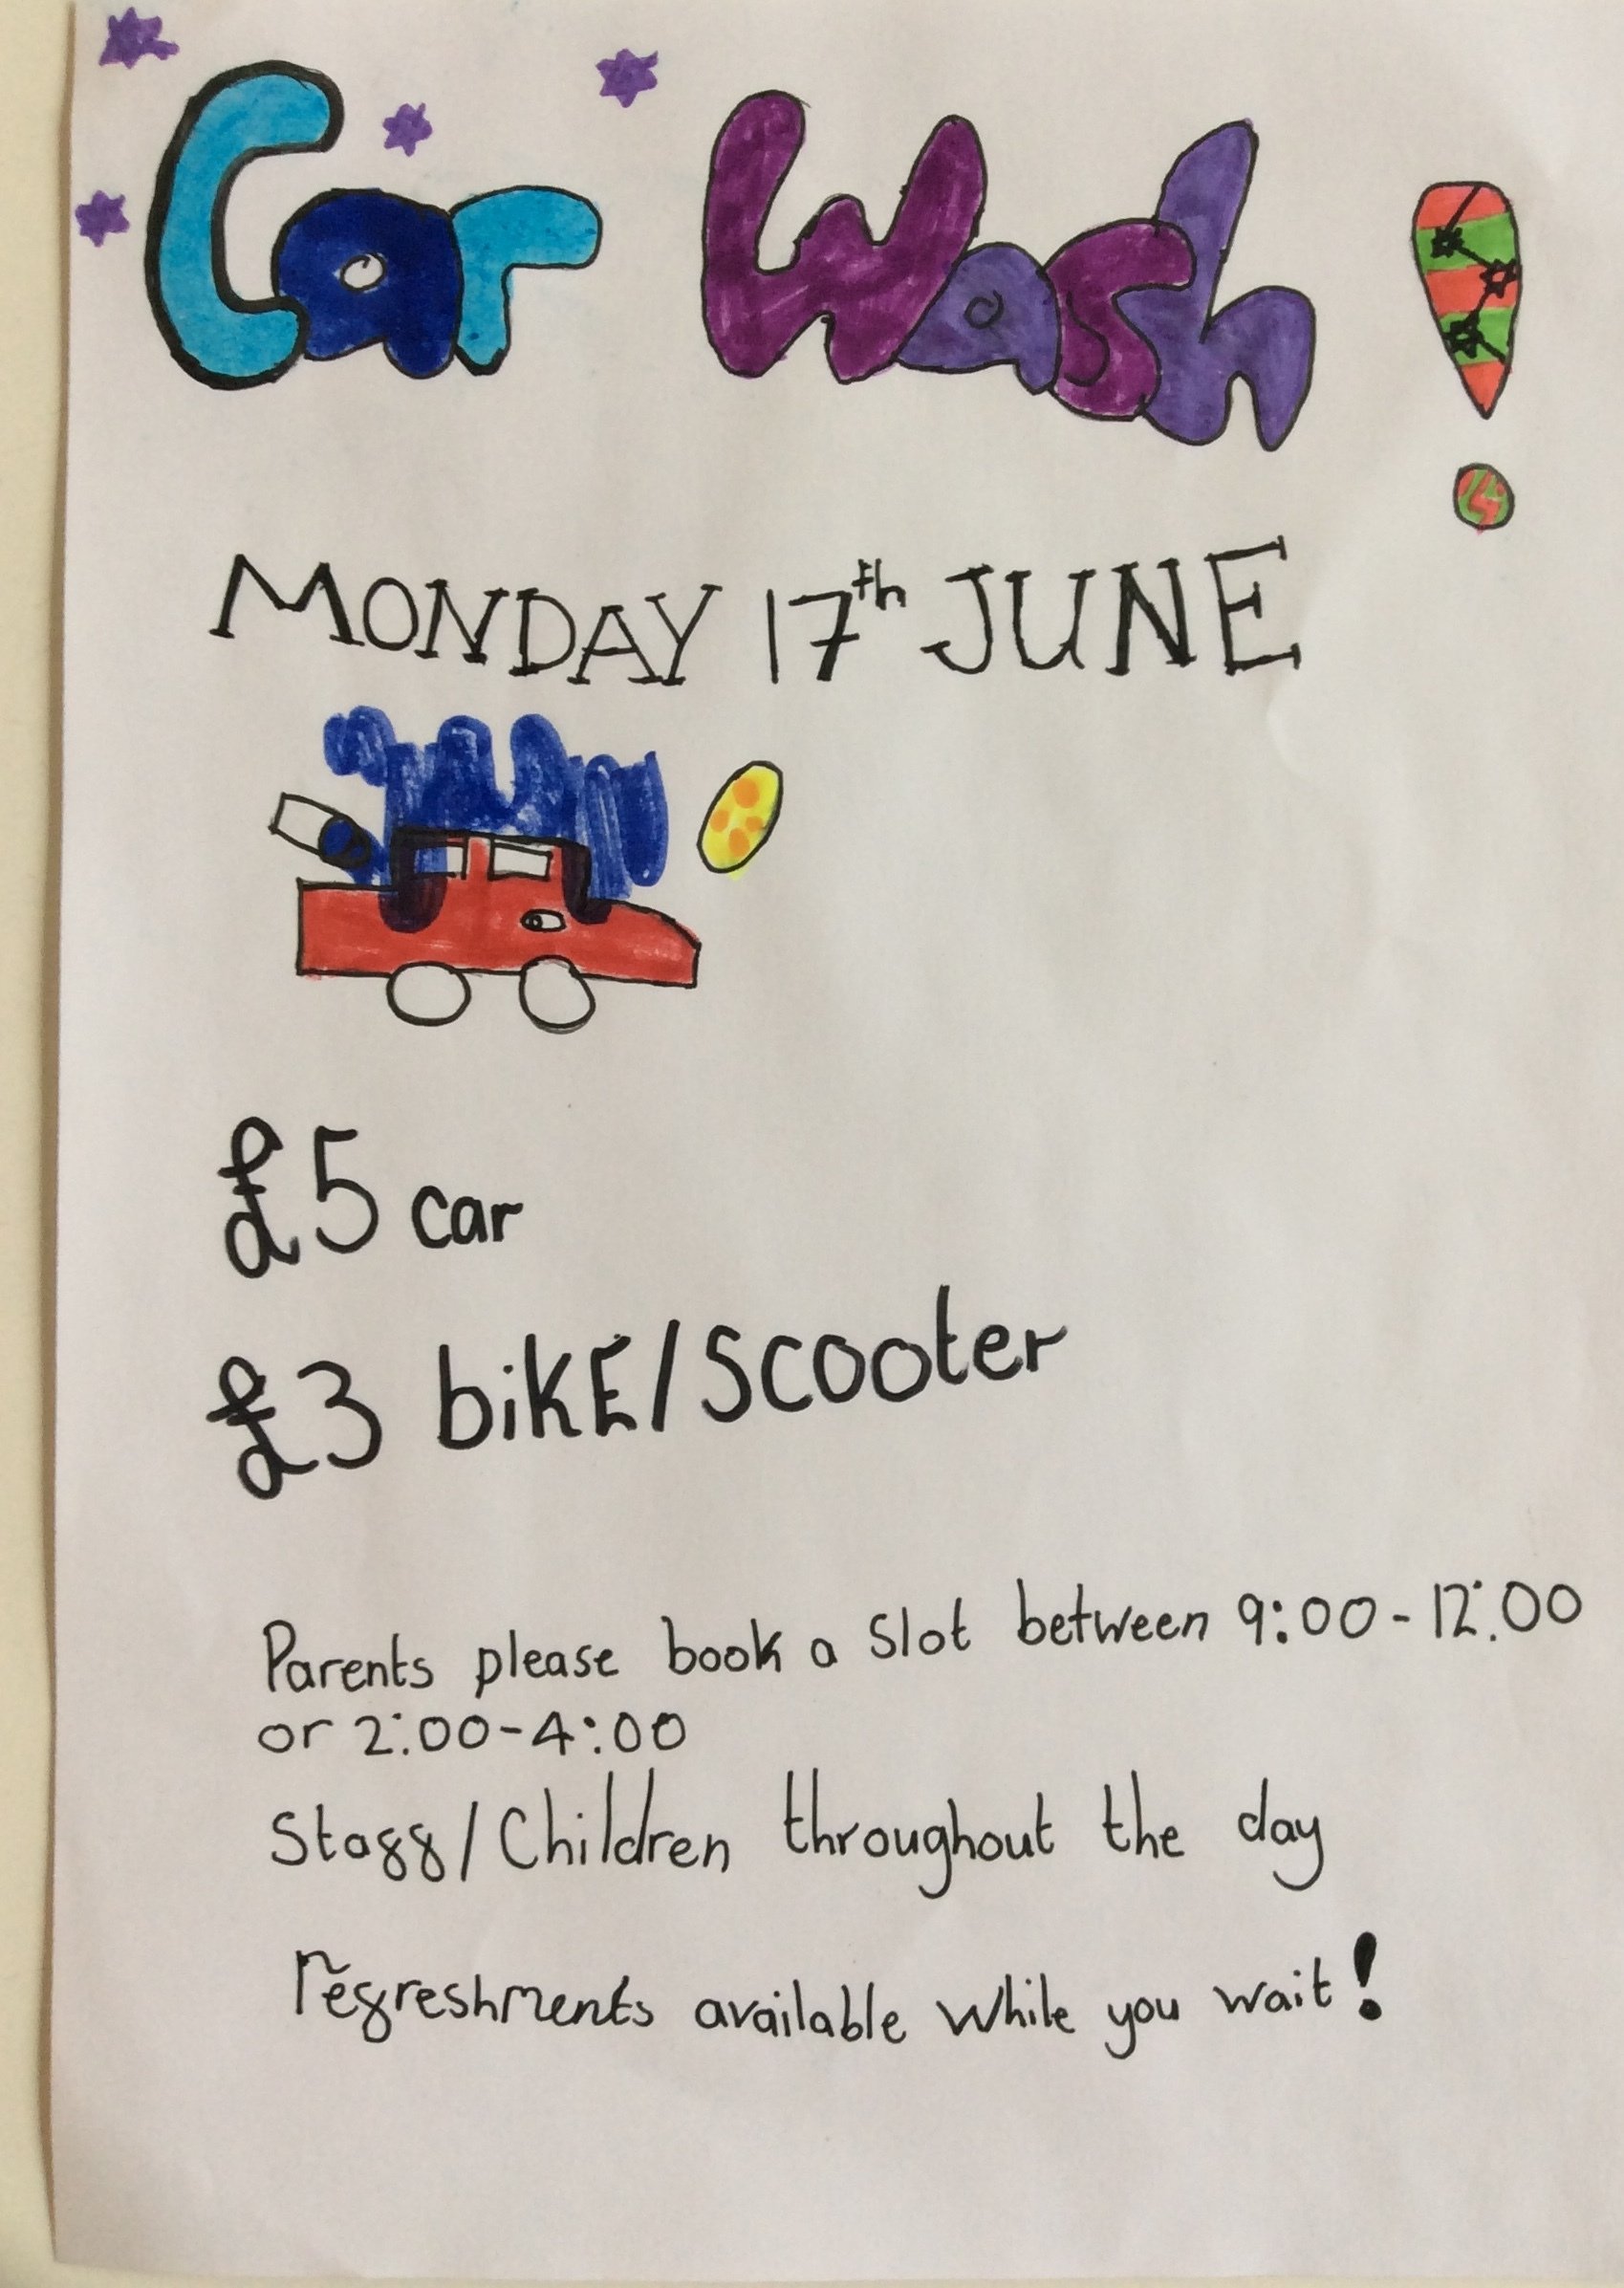 Car Wash !
MONDAY 17th JUNE
£5 car
£3 bikE/Scooter
Parents please book a Slot between 9:00-12:00
or 2:00-4:00
Staff/Children throughout the day
refreshments available while you wait!